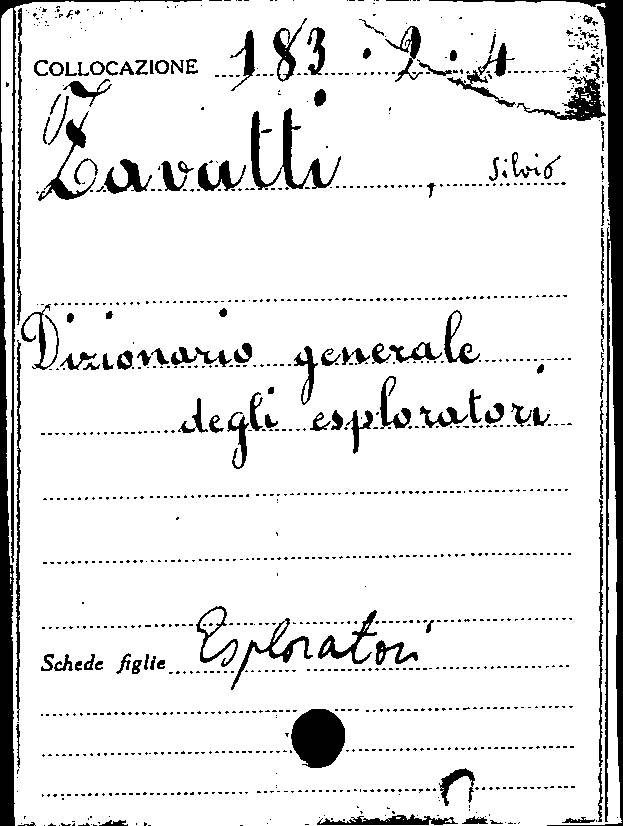 COLLOCAZIONE 183.2.4
Zavatti, Silvio
Dizionario generale
degli esploratori
Schede figlie Esploratori